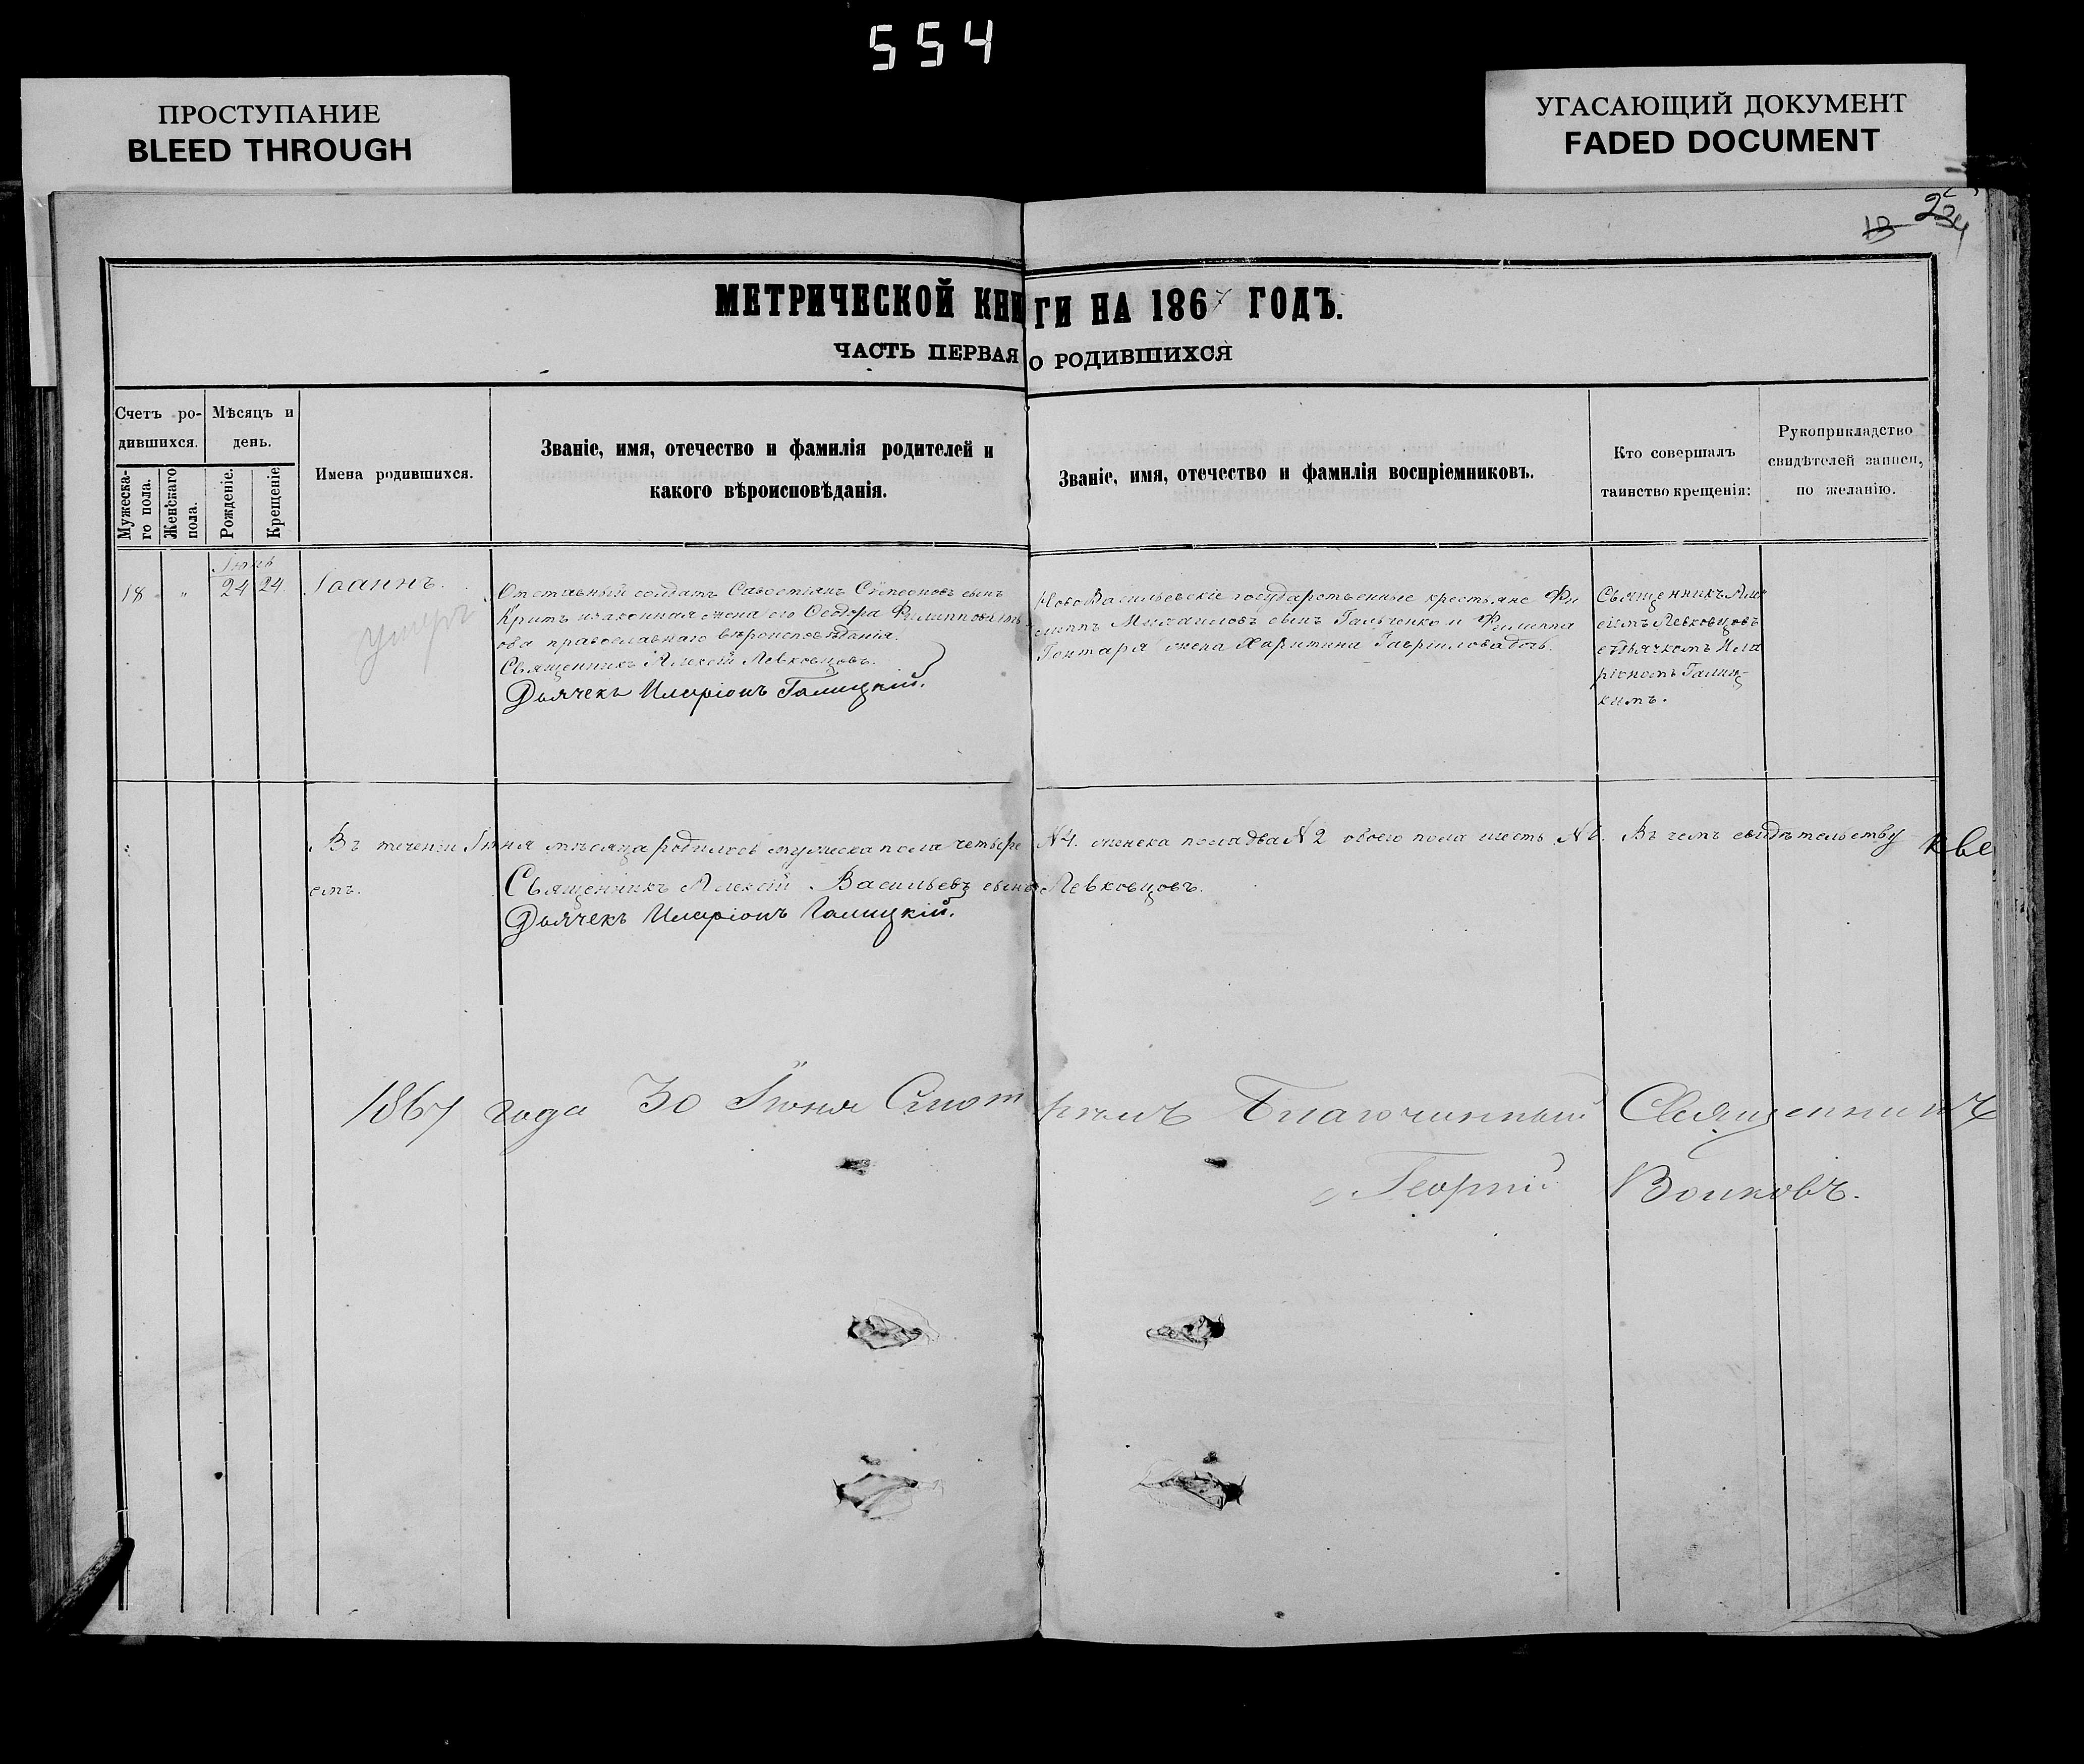 554
ПРОСТУПАНИЕ
BLEED THROUGH
УГАСАЮЩИЙ ДОКУМЕНТ
FADED DOCUMENT
МЕТРИЧЕСКОЙ КНИГИ НА 1867 ГОДЪ.
ЧАСТЬ ПЕРВАЯ О РОДИВШИХСЯ
Счетъ ро-
дившихся.
Мужеска-
го пола.
Женскаго
пола.
Мѣсяцъ и
день.
Рожденіе.
Крещеніе.
Имена родившихся.
Званіе, имя, отечество и фамилія родителей и
какого вѣроисповѣданія.
Званіе, имя, отечество и фамилія воспріемниковъ.
Кто совершалъ
таинство крещенія:
Рукоприкладство
свидѣтелей записи,
по желанію.
18
"
24
24
Іоаннъ.
умеръ
Отставный солдатъ Савостіянъ сынъ
законная жена его Ѳеодора Филиппова
оба православнаго вѣроисповѣданія.
Священникъ Алексій Левковцовъ.
Дьячекъ Иларіонъ Галицкій.
НовоВасильевскіе государственные крестьяне Фи
липпъ Михаиловъ сынъ Гальченко и Филиппа
Гонтаря жена Харитина Гавріилова
Священникъ Але
Левковцовъ
съ дьячкомъ Ила
ріономъ Галиц-
кимъ.
Въ теченіи Іюня мѣсяца родилось мужеска пола четыре №4. женска пола два №2 обоего пола шесть №6. Въ чемъ свидѣтельству
емъ.
Священникъ Алексій Васильевъ сынъ Левковцовъ.
Дьячекъ Иларіонъ Галицкій.
1867 года 30 Іюня Благочинный Священникъ
Георгій Волковъ.